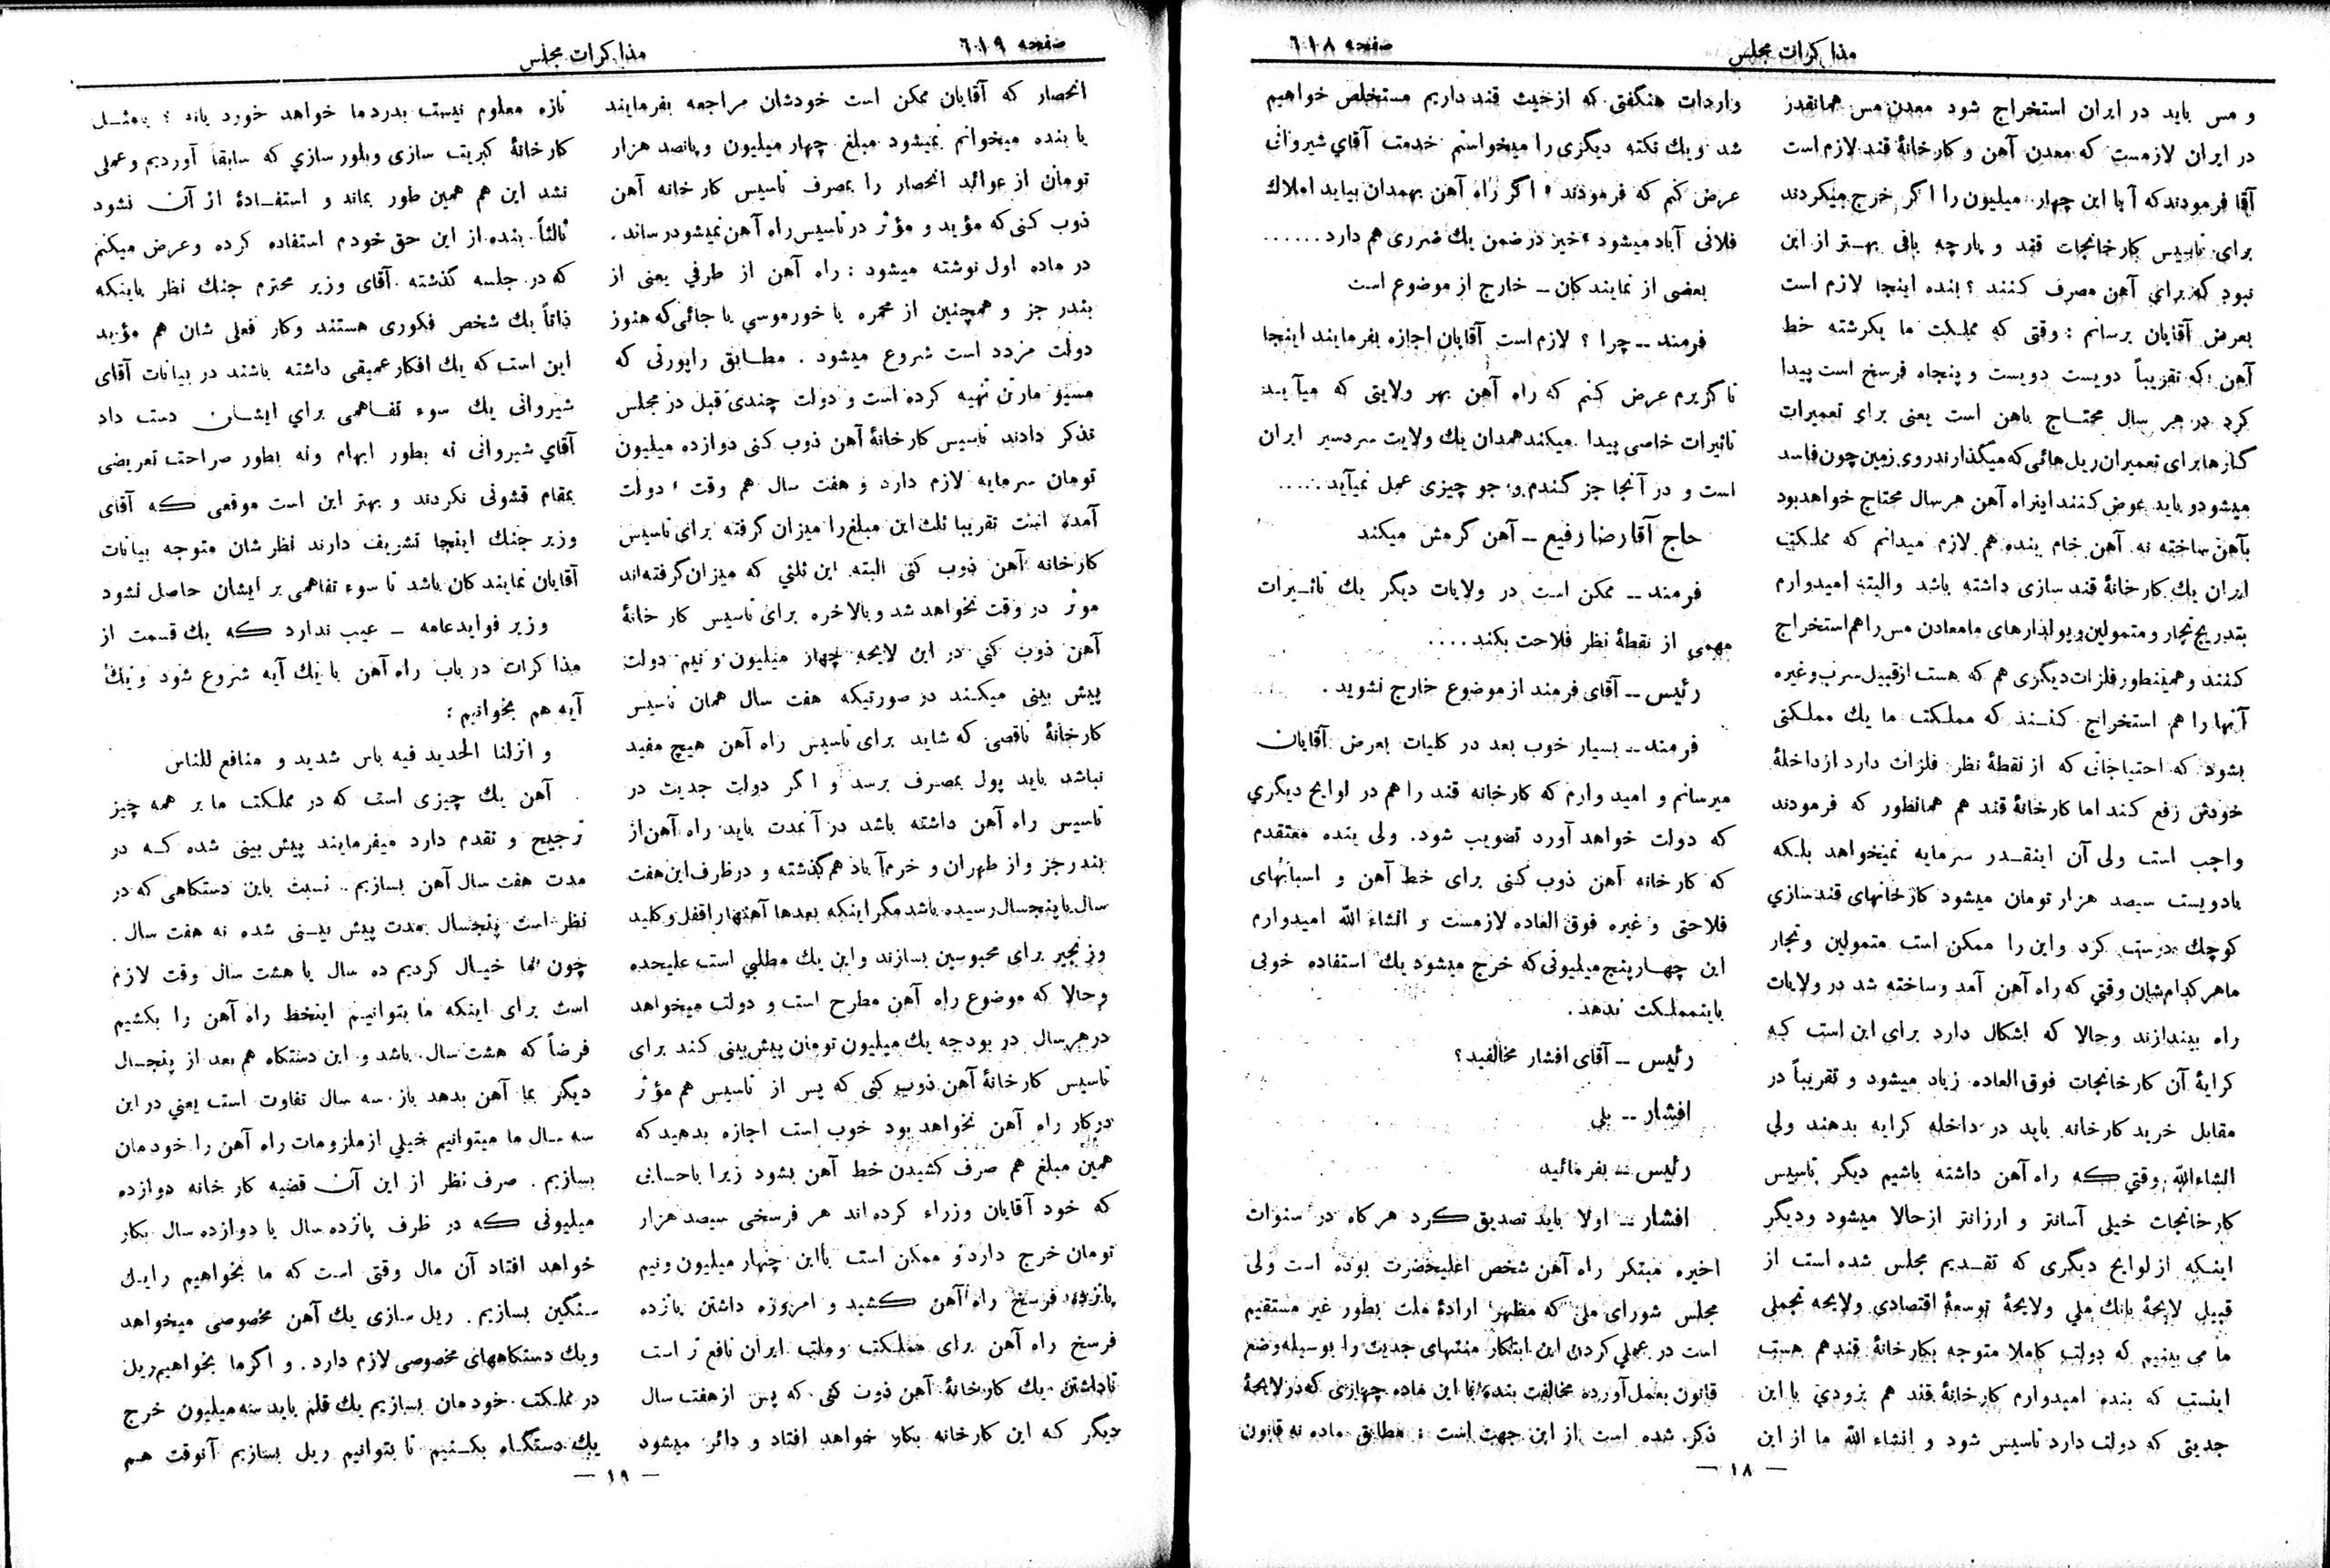 مذاکرات مجلس
صفحه ٦١٨
و مس باید در ایران استخراج شود معدن مس همانقدر
در ایران لازمست که معدن آهن و کارخانهٔ قند لازم است
آقا فرمودند که آیا این چهار میلیون را اگر خرج میکردند
برای تاسیس کارخانجات قند و پارچه بافی بهتر از این
نبود که برای آهن مصرف کنند ؟ بنده اینجا لازم است
بعرض آقایان برسانم : وقتی که مملکت ما یکرشته خط
آهن که تقریباً دویست دویست و پنجاه فرسخ است پیدا
کرد در هر سال محتاج باهن است یعنی برای تعمیرات
کارها برای تعمیران ریل هائی که میگذارند روی زمین چون فاسد
میشود و باید عوض کنند اینراه آهن هر سال محتاج خواهد بود
بآهن ساخته نه آهن خام بنده هم لازم میدانم که مملکت
ایران یك کارخانهٔ قند سازی داشته باشد والبته امیدوارم
بتدریج تجار و متمولین و پولدارهای ما معادن مس را هم استخراج
کنند و همینطور فلزات دیگری هم که هست از قبیل سرب و غیره
آنها را هم استخراج کنند که مملکت ما یك مملکتی
بشود که احتیاجاتی که از نقطهٔ نظر فلزات دارد از داخلهٔ
خودش رفع کند اما کارخانهٔ قند هم همانطور که فرمودند
واجب است ولی آن اینقدر سرمایه نمیخواهد بلکه
بادویست سیصد هزار تومان میشود کارخانهای قند سازی
کوچك درست کرد واین را ممکن است متمولین وتجار
ماهر کدام شان وقتی که راه آهن آمد وساخته شد در ولایات
راه بیندازند وحالا که اشکال دارد برای این است که
کرایهٔ آن کارخانجات فوق العاده زیاد میشود و تقریباً در
مقابل خرید کارخانه باید در داخله کرایه بدهند ولی
انشاءالله وقتی که راه آهن داشته باشیم دیگر تاسیس
کارخانجات خیلی آسانتر و ارزانتر از حالا میشود ودیگر
اینکه از لوایح دیگری که تقدیم مجلس شده است از
قبیل لایحهٔ بانك ملی ولایحهٔ توسعهٔ اقتصادی ولایحه تجملی
ما می بینیم که دولت کاملا متوجه بکارخانهٔ قند هم هست
اینست که بنده امیدوارم کارخانهٔ قند هم بزودی با این
جدیتی که دولت دارد تاسیس شود و انشاء الله ما از این
واردات هنگفتی که از حیث قند داریم مستخلص خواهیم
شد و یك نکته دیگری را میخواستم خدمت آقای شیروانی
عرض کنم که فرمودند ، اگر راه آهن بهمدان بیاید املاك
فلانی آباد میشود ، خیر در ضمن یك ضرری هم دارد ......
بعضی از نمایندکان ــ خارج از موضوع است
فرمند ــ چرا ؟ لازم است آقایان اجازه بفرمایند اینجا
ناگزیرم عرض کنم که راه آهن بهر ولایتی که میآید
تاثیرات خاصی پیدا میکند همدان یك ولایت سردسیر ایران
است و در آنجا جز گندم و جو چیزی عمل نمیآید .....
حاج آقا رضا رفیع ــ آهن گرمش میکند
فرمند ــ ممکن است در ولایات دیگر یك تاثیرات
مهمی از نقطهٔ نظر فلاحت بکند ....
رئیس ــ آقای فرمند از موضوع خارج نشوید .
فرمند ــ بسیار خوب بعد در کلیات بعرض آقایان
میرسانم و امیدوارم که کارخانه قند را هم در لوایح دیگری
که دولت خواهد آورد تصویب شود. ولی بنده معتقدم
که کارخانه آهن ذوب کنی برای خط آهن و اسبابهای
فلاحتی و غیره فوق العاده لازمست و انشاء الله امیدوارم
این چهار پنج میلیونی که خرج میشود یك استفاده خوبی
باینمملکت ندهد .
رئیس ــ آقای افشار مخالفید ؟
افشار ــ بلی
رئیس ــ بفرمائید
افشار ــ اولا باید تصدیق کرد هرکاه در سنوات
اخیره مبتکر راه آهن شخص اعلیحضرت بوده است ولی
مجلس شورای ملی که مظهر ارادهٔ ملت بطور غیر مستقیم
است در عملی کردن این ابتکار منتهای جدیت را بوسیله وضع
قانون بعمل آورده مخالفت بنده با این ماده چهاری که در لایحهٔ
ذکر شده است از این جهت است : مطابق ماده نه قانون
ــ ١٨ ــ
صفحه ٦١٩
مذاکرات مجلس
انحصار که آقایان ممکن است خودشان مراجعه بفرمایند
یا بنده میخوانم نمیشود مبلغ چهار میلیون و پانصد هزار
تومان از عوائد انحصار را بمصرف تاسیس کارخانه آهن
ذوب کنی که مؤید و مؤثر در تاسیس راه آهن نمیشود رساند .
در ماده اول نوشته میشود : راه آهن از طرفی یعنی از
بندر جز و همچنین از محمره یا خور موسی یا جائی که هنوز
دولت مردد است شروع میشود . مطابق راپورتی که
مسیو مارتن تهیه کرده است و دولت چندی قبل در مجلس
تذکر دادند تاسیس کارخانهٔ آهن ذوب کنی دوازده میلیون
تومان سرمایه لازم دارد و هفت سال هم وقت ، دولت
آمده است تقریبا ثلث این مبلغ را میزان گرفته برای تاسیس
کارخانه آهن ذوب کنی البته این ثلثی که میزان گرفته‌اند
موثر در وقت نخواهد شد و بالاخره برای تاسیس کارخانهٔ
آهن ذوب کنی در این لایحه چهار میلیون و نیم دولت
پیش بینی میکند در صورتیکه هفت سال همان تاسیس
کارخانهٔ ناقصی که شاید برای تاسیس راه آهن هیچ مفید
نباشد باید پول بمصرف برسد و اگر دولت جدیت در
تاسیس راه آهن داشته باشد در آنمدت باید راه آهن از
بندر جز و از طهران و خرم‌آباد هم گذشته و در ظرف این هفت
سال یا پنجسال رسیده باشد مگر اینکه بعدها آهنهارا قفل و کلید
و زنجیر برای محبوسین بسازند واین یك مطلبی است علیحده
وحالا که موضوع راه آهن مطرح است و دولت میخواهد
در هر سال در بودجه یك میلیون تومان پیش‌بینی کند برای
تاسیس کارخانهٔ آهن ذوب کنی که پس از تاسیس هم مؤثر
درکار راه آهن نخواهد بود خوب است اجازه بدهید که
همین مبلغ هم صرف کشیدن خط آهن بشود زیرا باحسابی
که خود آقایان وزراء کرده‌اند هر فرسخی سیصد هزار
تومان خرج دارد و ممکن است بااین چهار میلیون ونیم
پانزده فرسخ راه آهن کشید و امروزه داشتن پانزده
فرسخ راه آهن برای مملکت وملت ایران نافع تر است
تاداشتن یك کارخانهٔ آهن ذوب کنی که پس از هفت سال
دیگر که این کارخانه بکار خواهد افتاد و دائر میشود
تازه معلوم نیست بدردما خواهد خورد یانه ؟ بمثل
کارخانهٔ کبریت سازی وبلورسازی که سابقا آوردیم وعملی
نشد این هم همین طور بماند و استفادهٔ از آن نشود
ثالثاً بنده از این حق خودم استفاده کرده وعرض میکنم
که در جلسه گذشته آقای وزیر محترم جنك نظر باینکه
ذاتاً یك شخص فکوری هستند وکار فعلی شان هم مؤید
این است که یك افکار عمیقی داشته باشند در بیانات آقای
شیروانی یك سوء تفاهمی برای ایشان دست داد
آقای شیروانی نه بطور ابهام ونه بطور صراحت تعریضی
بمقام قشونی نکردند و بهتر این است موقعی که آقای
وزیر جنك اینجا تشریف دارند نظر شان متوجه بیانات
آقایان نمایندکان باشد تا سوء تفاهمی بر ایشان حاصل نشود
وزیر فوایدعامه ــ عیب ندارد که یك قسمت از
مذاکرات در باب راه آهن با یك آیه شروع شود ویك
آیه هم بخوانیم :
و انزلنا الحدید فیه باس شدید و منافع للناس
آهن یك چیزی است که در مملکت ما بر همه چیز
ترجیح و تقدم دارد میفرمایند پیش بینی شده که در
مدت هفت سال آهن بسازیم .. نسبت باین دستکاهی که در
نظر است پنجسال مدت پیش بینی شده نه هفت سال .
چون ما خیال کردیم ده سال یا هشت سال وقت لازم
است برای اینکه ما بتوانیم اینخط راه آهن را بکشیم
فرضاً که هشت سال باشد و این دستکاه هم بعد از پنجسال
دیگر بما آهن بدهد باز سه سال تفاوت است یعنی در این
سه سال ما میتوانیم خیلی از ملزومات راه آهن را خودمان
بسازیم . صرف نظر از این آن قضیه کارخانه دوازده
میلیونی که در ظرف پانزده سال یا دوازده سال بکار
خواهد افتاد آن مال وقتی است که ما بخواهیم رایل
سنگین بسازیم . ریل سازی یك آهن مخصوصی میخواهد
ویك دستکاههای مخصوصی لازم دارد . و اگرما بخواهیم ریل
در مملکت خودمان بسازیم یك قلم باید سه میلیون خرج
یك دستگاه بکنیم تا بتوانیم ریل بسازیم آنوقت هم
ــ ١٩ ــ